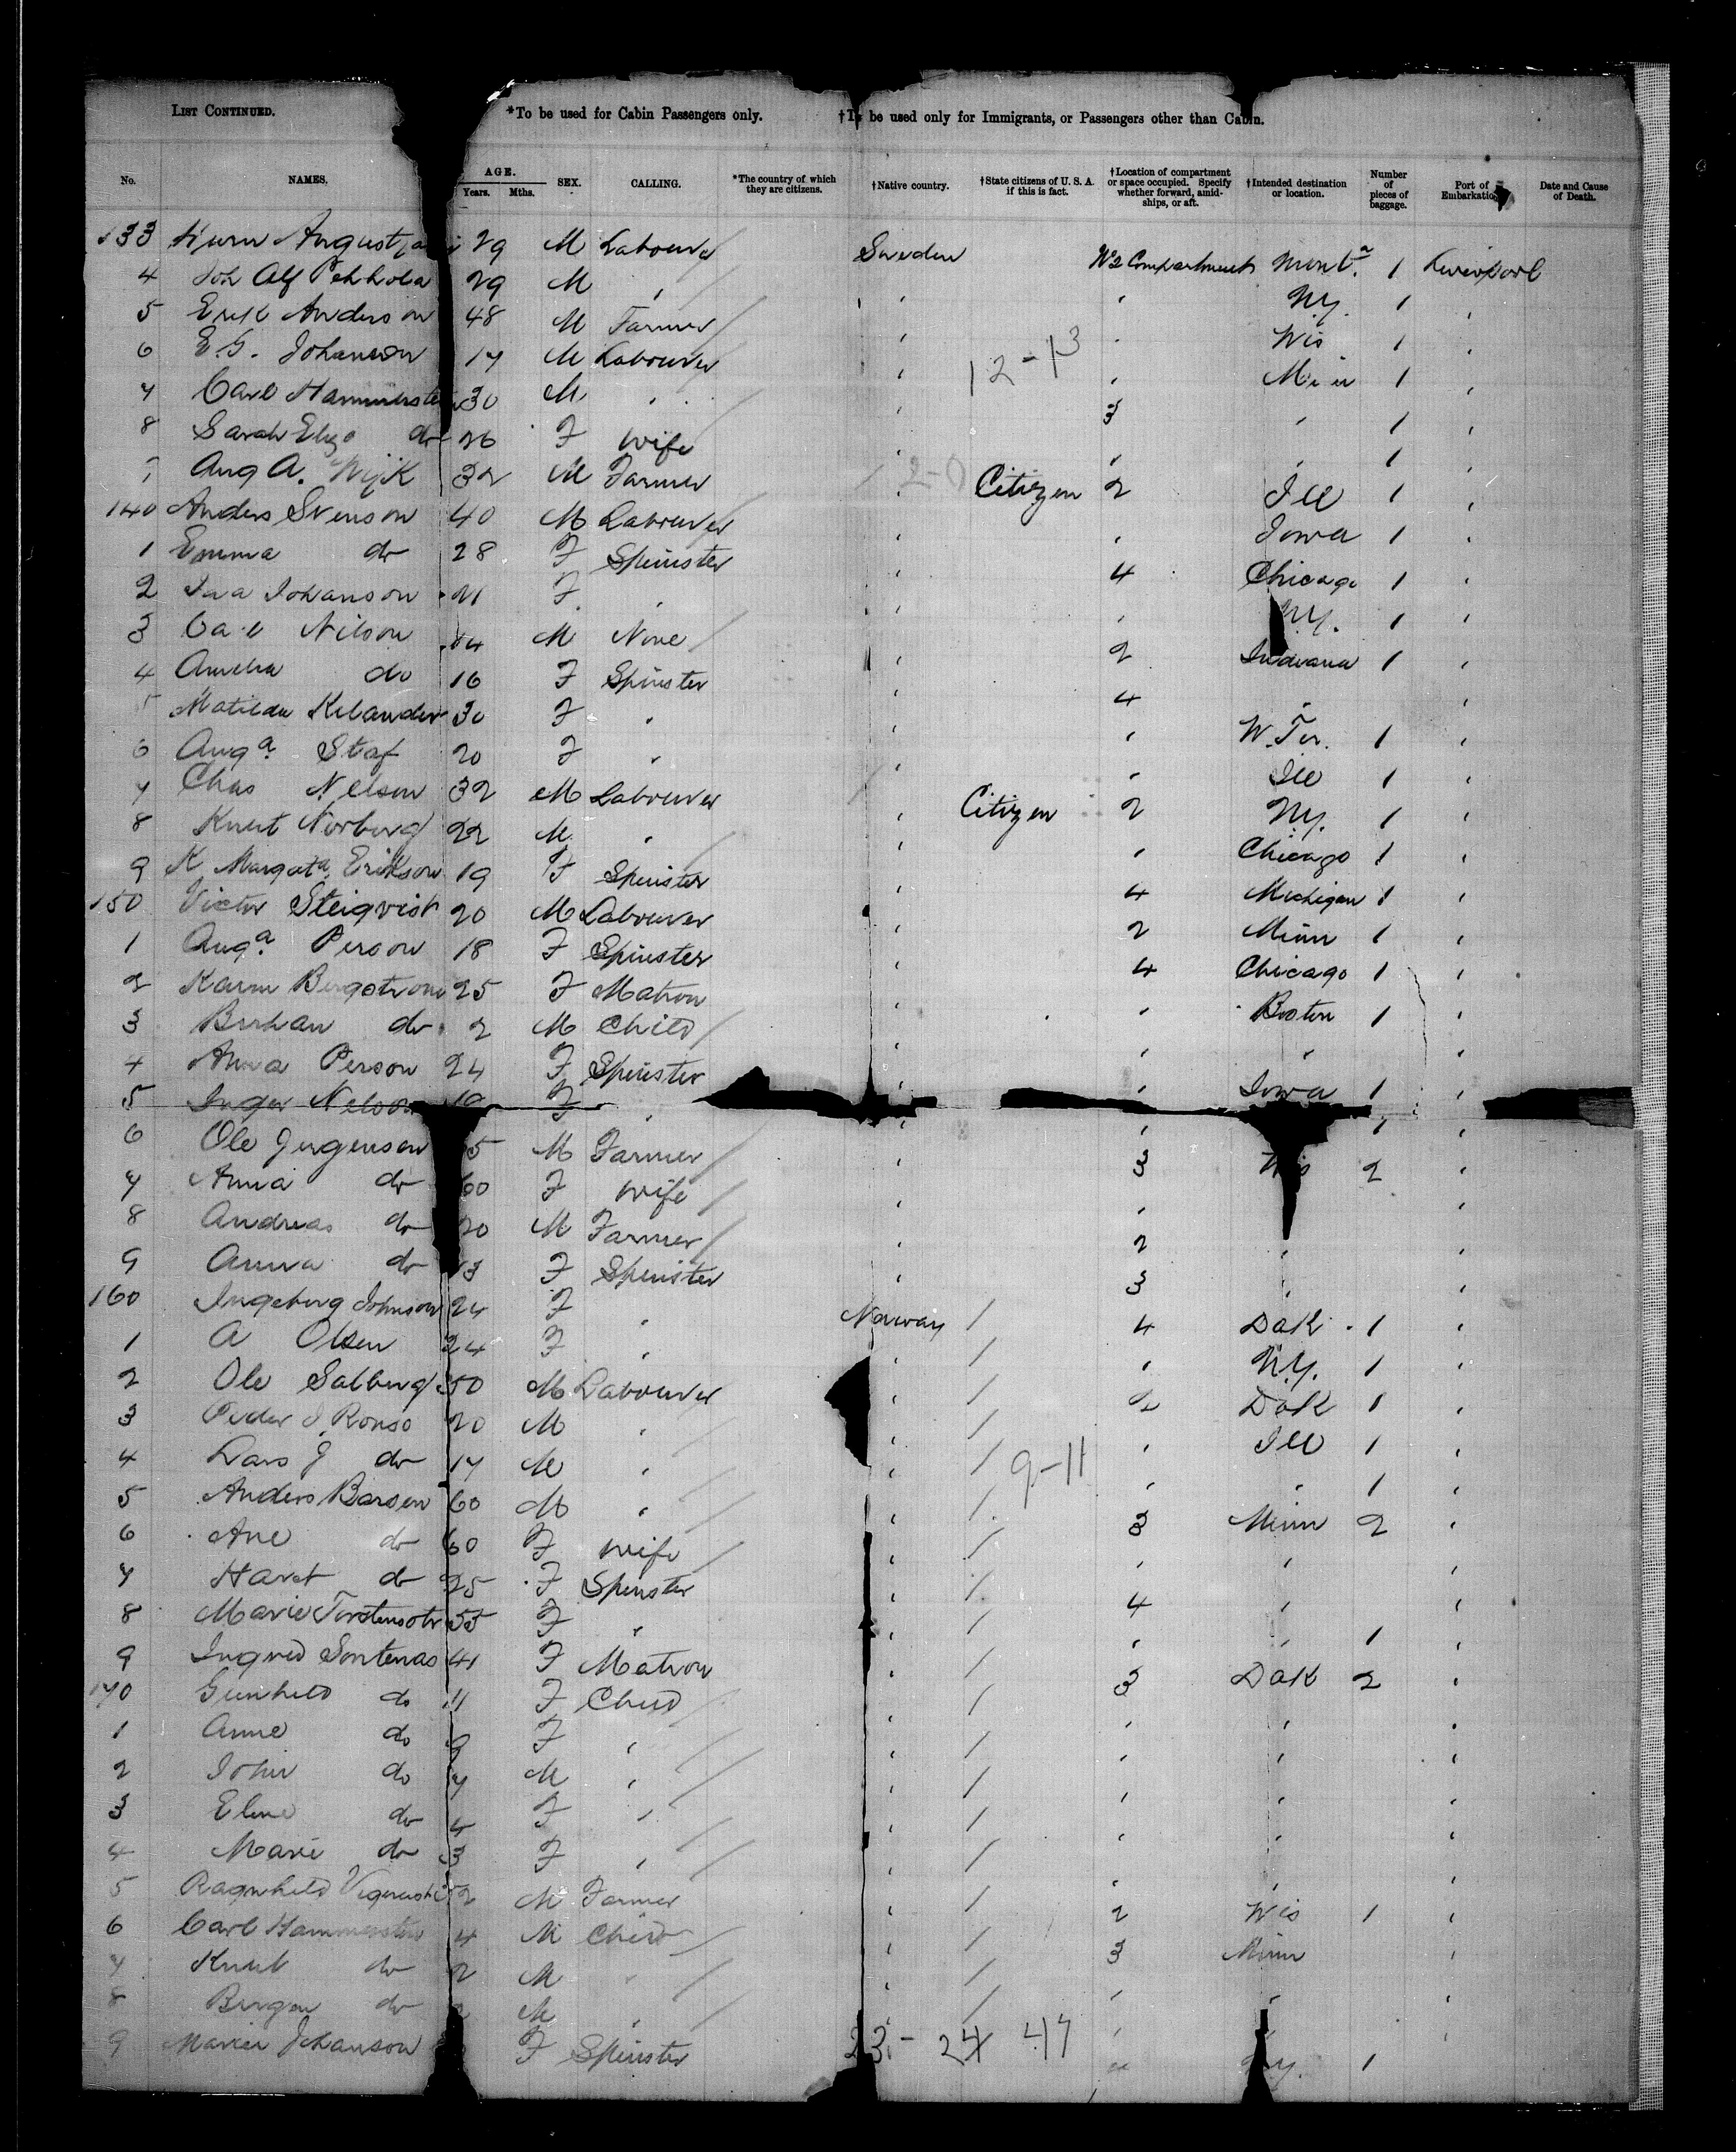 LIST CONTINUED. *To be used for Cabin Passengers only. †To be used only for Immigrants, or Passengers other than Cabin.
No. NAMES. AGE. Years. Mths. SEX. CALLING. *The country of which they are citizens. †Native country. †State citizens of U. S. A. if this is fact. †Location of compartment or space occupied. Specify whether forward, amidships, or aft. †Intended destination or location. Number of pieces of baggage. Port of Embarkation Date and Cause of Death.
133 August 29 M Labourer Sweden No 2 Compartment Mont.a 1 Liverpool
4 Joh Alf 29 M " " " N.y. 1 "
5 Erik Anderson 48 M Farmer " " Wis 1 "
6 E.G. Johanson 17 M Labourer " 12-13 " Min 1 "
7 Carl 30 M " " 3 " 1 "
8 Sarah Eliza do 26 F Wife " " " 1 "
Aug A. Wijk 32 M Farmer " Citizen 2 Ill 1 "
140 Anders Svenson 40 M Labourer " " Iowa 1 "
1 Emma do 28 F Spinster " 4 Chicago 1 "
2 Johanson 21 F " " " N.y. 1 "
3 Nilson M None " 2 Indiana 1 "
4 Amelia do 16 F Spinster " 4 " "
5 Matilda Kilander 30 F " " " W. Ter. 1 "
6 Auga. Staf 20 F " " " Ill 1 "
7 Chas Nelson 32 M Labourer " Citizen 2 N.y. 1 "
8 Knut Norberg 22 M " " " Chicago 1 "
9 K Margata. Erikson 19 F Spinster " 4 Michigan 1 "
150 Victor Steiqvist 20 M Labourer " 2 Minn 1 "
1 Auga. Person 18 F Spinster " 4 Chicago 1 "
2 Karin Bergstrom 25 F Matron " " Boston 1 "
3 do 2 M Child " " " "
4 Anna Person 24 F Spinster " " Iowa 1 "
5 Inger Nelson F " " " 1 "
6 Ole Jergenson M Farmer " 3 Wis 2 "
7 Anna do 60 F Wife " " "
8 Andreas do 20 M Farmer " 2 " "
9 Anna do F Spinster " 3 " "
160 Ingeborg Johnson 24 F " Norway 4 Dak 1 "
1 A Olsen 24 F " " " N.y. 1 "
2 Ole Salberg 50 M Labourer " 2 Dak 1 "
3 Peder J. Ronso 20 M " " " Ill 1 "
4 Lars J do 17 M " " 9-11 " " 1 "
5 Anders Barsen 60 M " " 3 Minn 2 "
6 Ane do 60 F Wife " " " "
7 do 25 F Spinster " 4 " "
8 Marie 55 F " " " " 1 "
9 Ingred Sontenas 41 F Matron " 3 Dak 2 "
170 Gunhild do 11 F Child " " " "
1 Anne do 9 F " " " " "
2 John do 7 M " " " " "
3 Eline do 4 F " " " " "
4 Marie do 3 F " " " " "
5 Ragnhild M Farmer " 2 Wis 1 "
6 Carl 4 M Child " 3 Minn "
7 Knut do 2 M " " " " "
8 do M " " " "
9 Johanson F Spinster 23 - 24 47 1